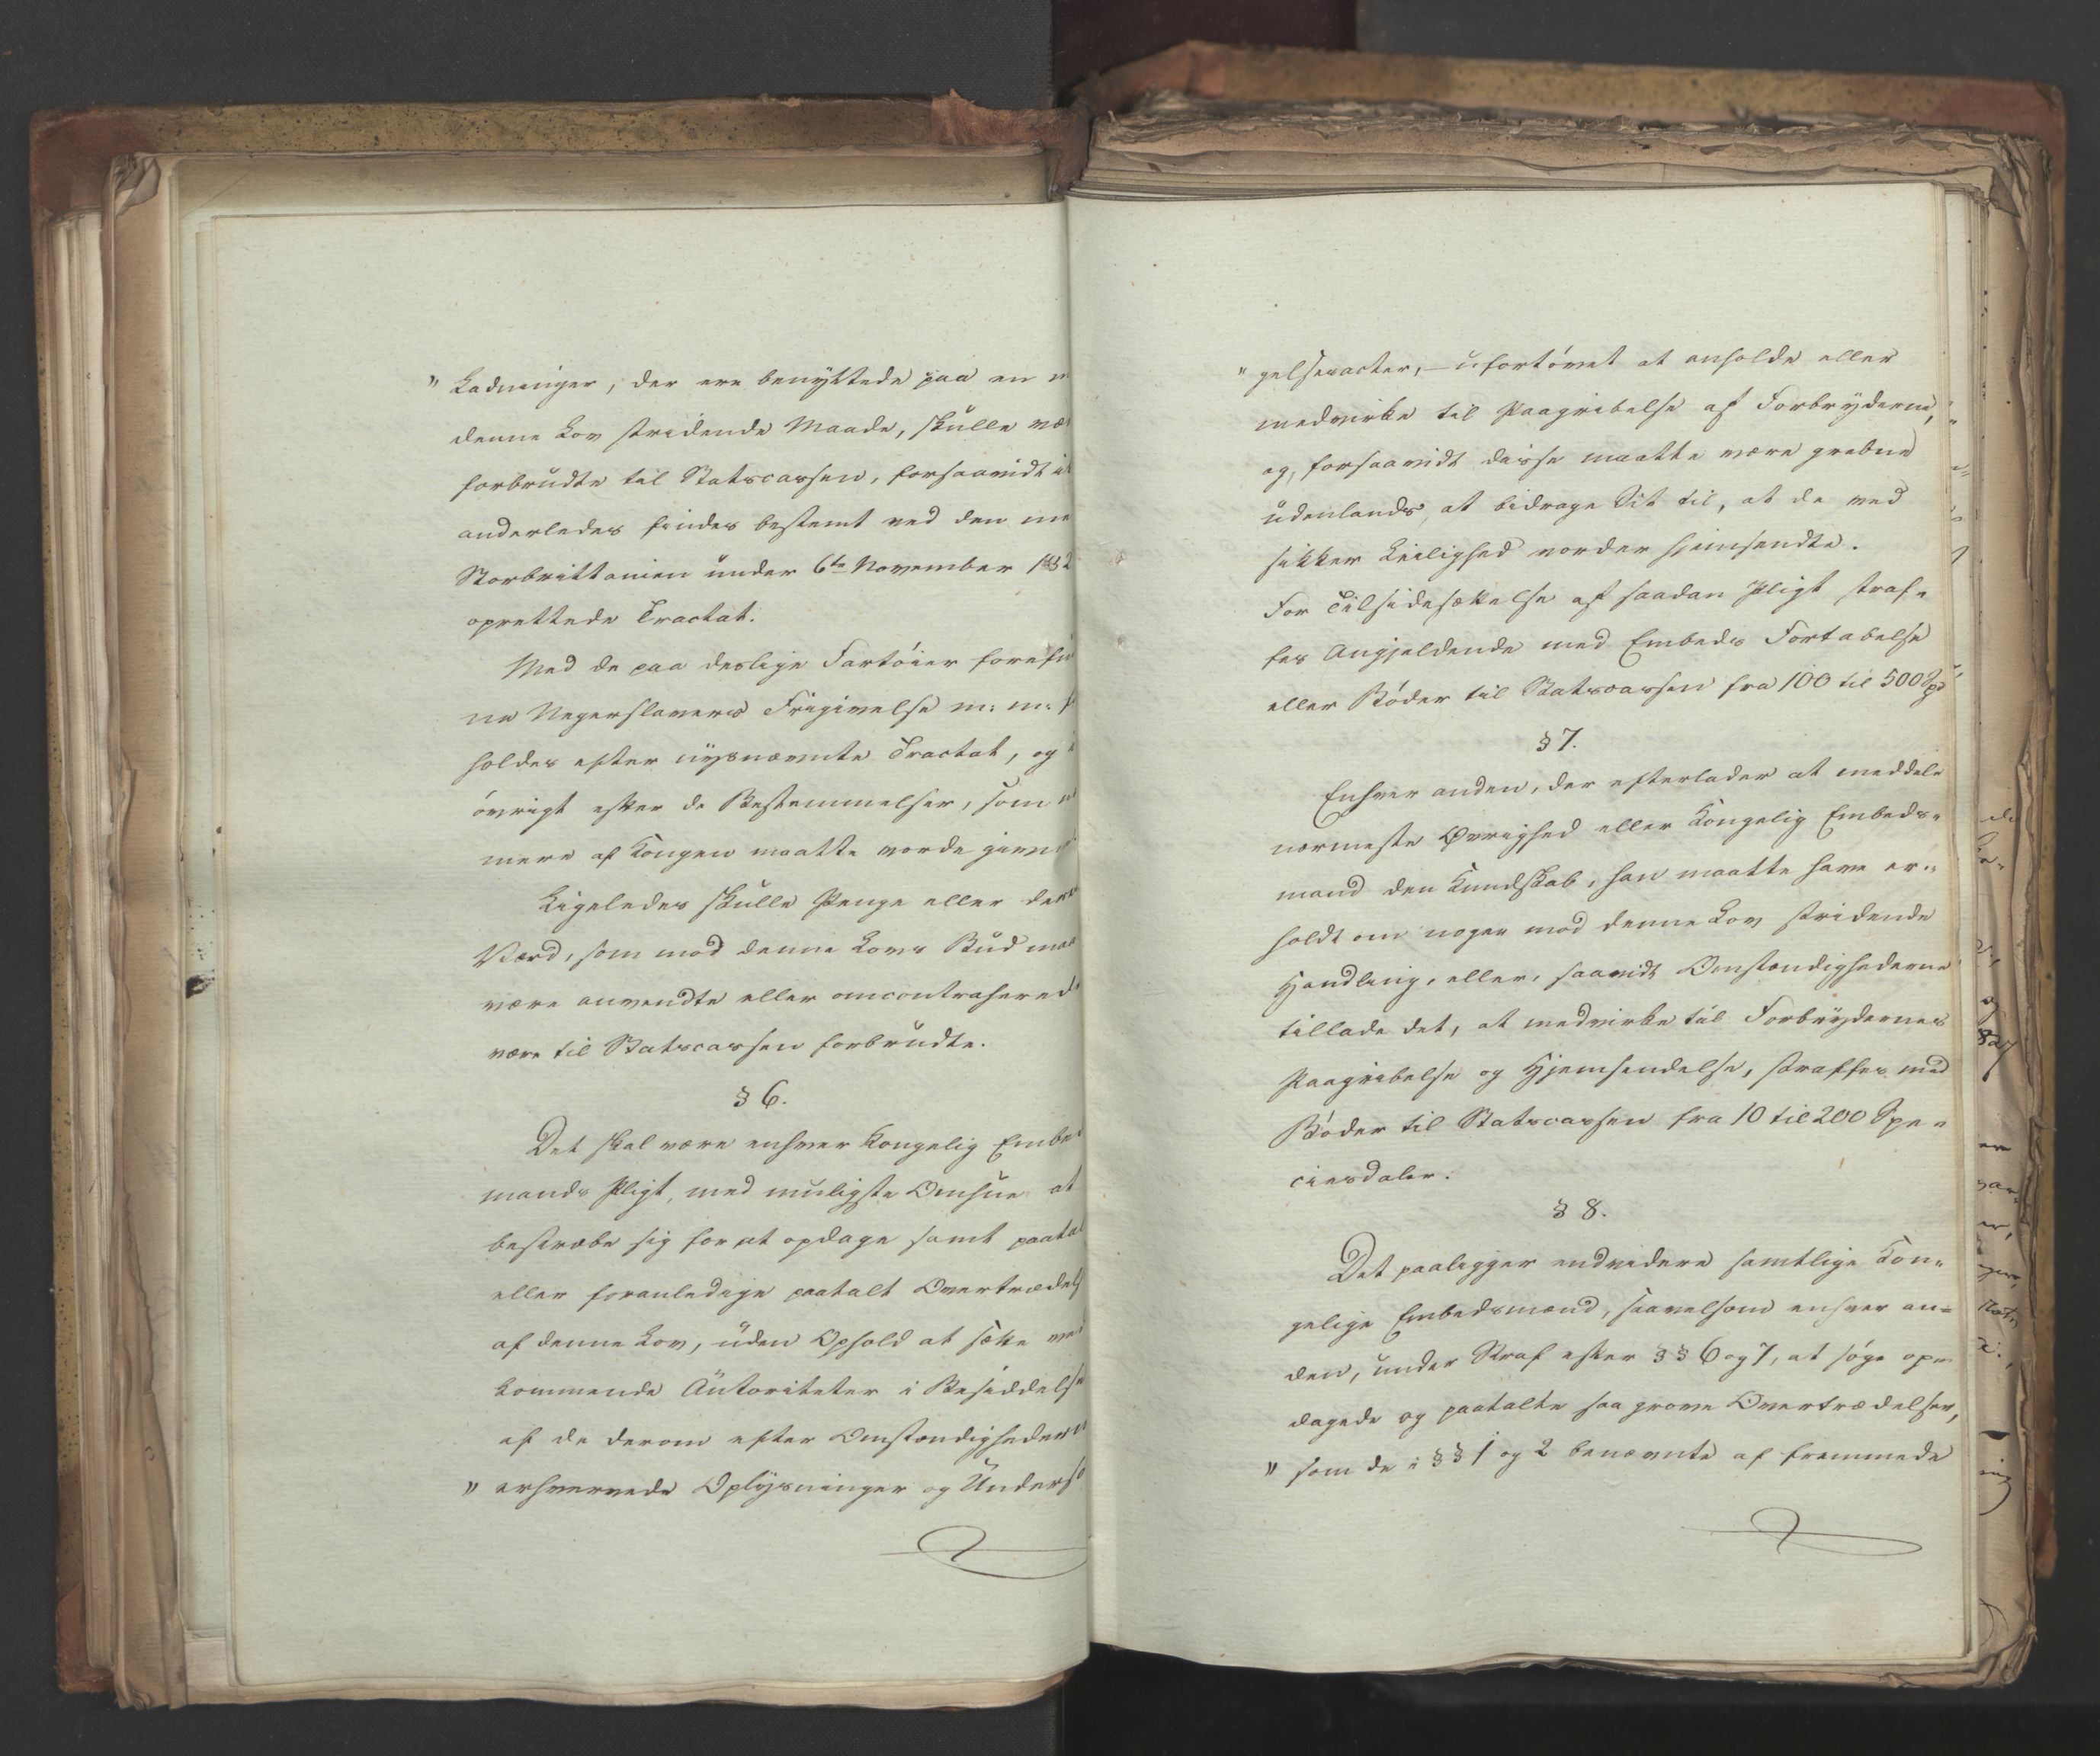 " Ladninger, der ere benyttede paa en m
denne Lov stridende Maade, skulle vær
forbrudte til Statscassen, forsaavidt ik
anderledes findes bestemt ved den me
Storbrittanien under 6te November 1832
oprettede Tractat.
Med de paa deslige Fartöier forefu
ne Negerslavers Frigivelse m: m: f
holdes efter nysnævnte Tractat, og i
övrigt efter de Bestemmelser, som
mere af Kongen maatte vorde givne
Ligeledes skulle Penge eller dere
Værd, som mod denne Lovs Bud maa
være anvendte eller omcontraherede
være til Statscassen forbrudte.
§ 6.
Det skal være enhver Kongelig Embed
mands Pligt, med muligste Omhue at
bestræbe sig for at opdage samt paatal
eller foranledige paatalt Overtrædels
af denne Lov, uden Ophold at sætte ved
kommende Autoriteter i Besiddelse
af de derom efter Omstændighederne
" erhvervede Oplysninger og Undersö
" gelsesacter, – ufortövet at anholde eller
medvirke til Paagribelse af Forbryderne,
og, forsaavidt disse maatte være grebne
udenlands, at bidrage Sit til, at de ved
sikker Leilighed vorder hjemsendte.
For Tilsidesættelse af saadan Pligt straf-
fes Angjeldende med Embeds Fortabelse
eller Böder til Statscassen fra 100 til 500 Spd
§ 7.
Enhver anden, der efterlader at meddele
nærmeste Øvrighed eller Kongelig Embeds-
mand den Kundskab, han maatte have er-
holdt om nogen mod denne Lov stridende
Handling, eller, saavidt Omstændighederne
tillade det, at medvirke til Forbrydernes
Paagribelse og Hjemsendelse, straffes med
Böder til Statscassen fra 10 til 200 Spe-
ciesdaler.
§ 8.
Det paaligger endvidere samtlige Kon-
gelige Embedsmænd, saavelsom enhver an-
den, under Straf efter §§ 6 og 7, at söge op-
dagede og paatalte saa grove Overtrædelser,
" som de i §§ 1 og 2 benævnte af fremmede